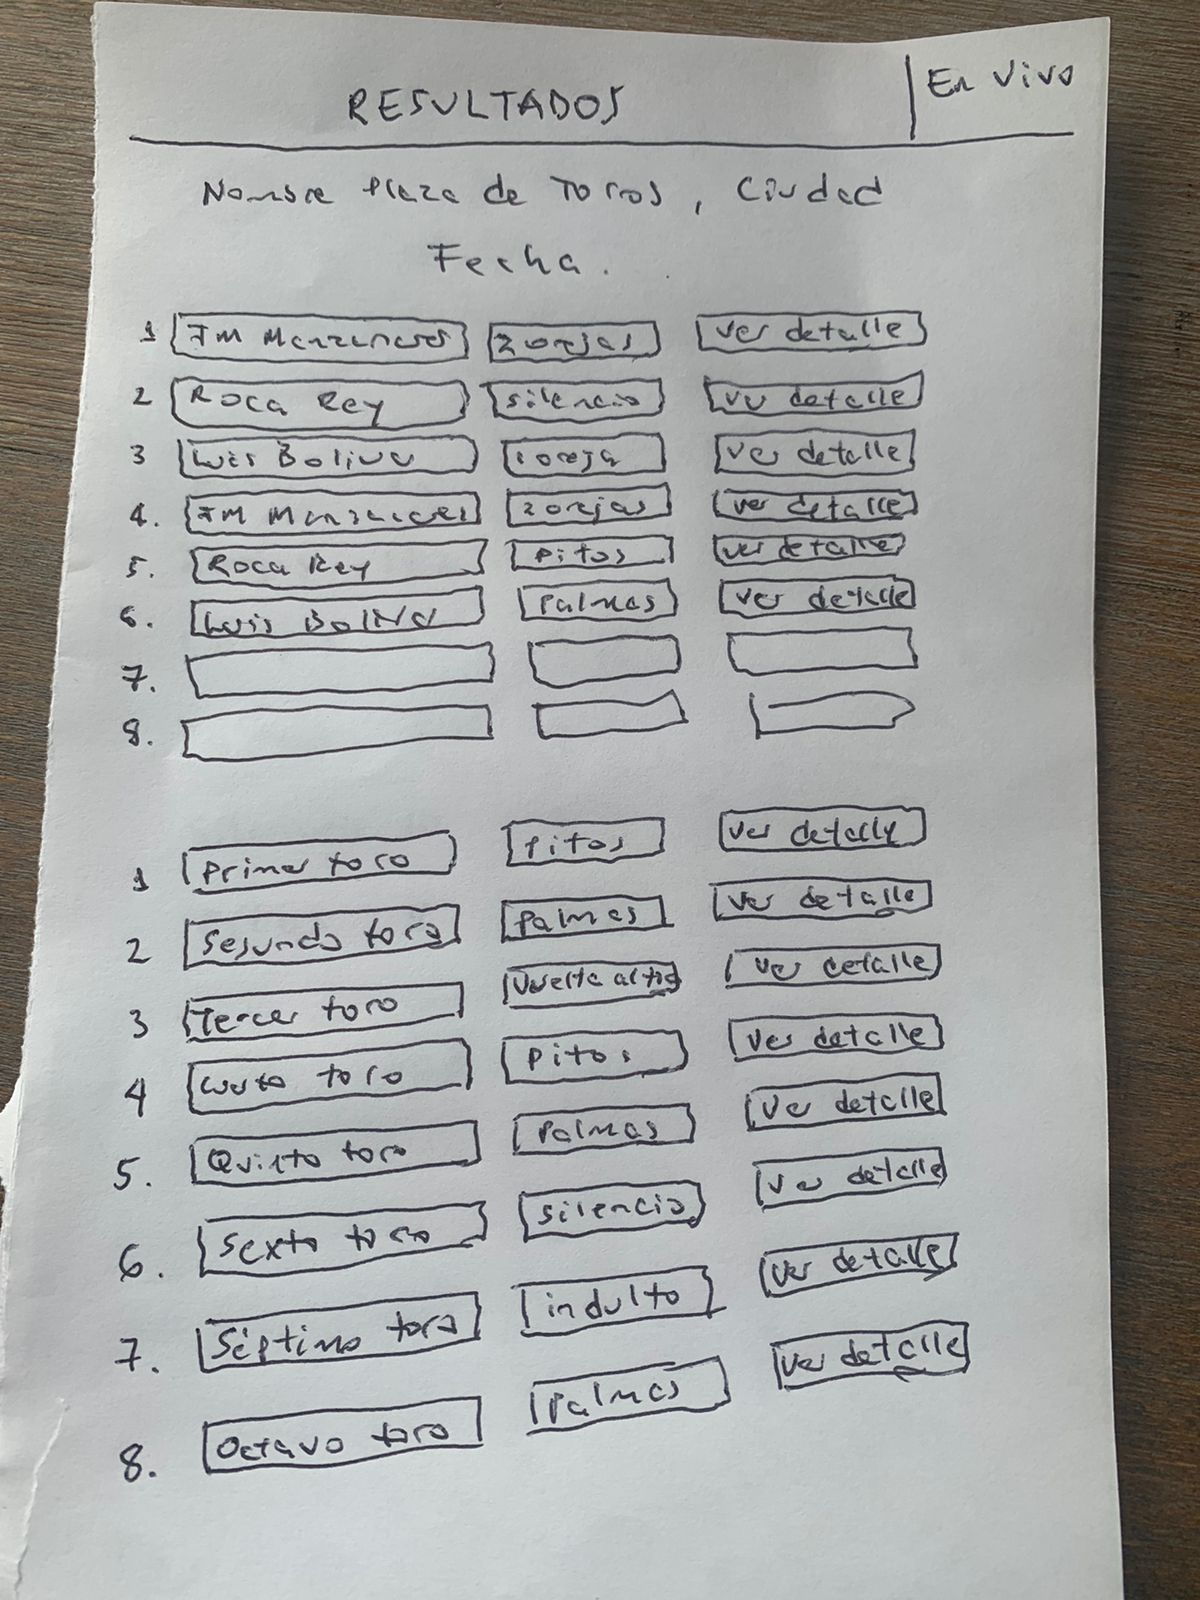 RESULTADOS
En Vivo
Nombre Plaza de Toros, Ciudad
Fecha.
1 JM Manzanares 2 orejas Ver detalle
2 Roca Rey Silencio Ver detalle
3 Luis Bolivar 1 oreja Ver detalle
4. JM Manzanares 2 orejas Ver detalle
5. Roca Rey Pitos Ver detalle
6. Luis Bolivar Palmas Ver detalle
7.
8.
1 Primer toro Pitos Ver detalle
2 Segundo toro Palmas Ver detalle
3 Tercer toro Vuelta al Ver detalle
4 Cuarto toro Pitos Ver detalle
5. Quinto toro Palmas Ver detalle
6. Sexto toro Silencio Ver detalle
7. Séptimo toro indulto Ver detalle
8. Octavo toro Palmas Ver detalle